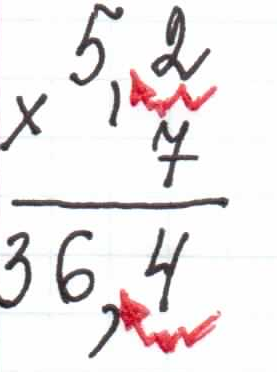 5,2
× 7
36,4